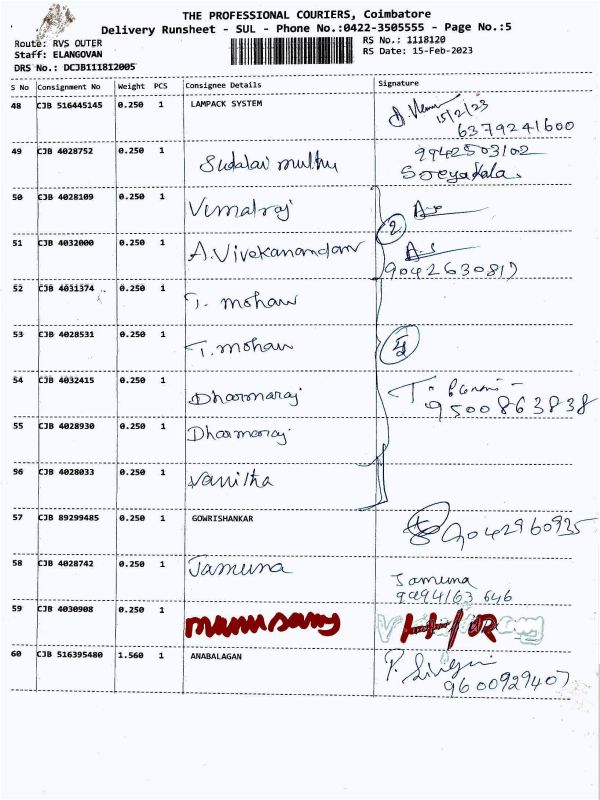 THE PROFESSIONAL COURIERS, Coimbatore
Delivery Runsheet - SUL - Phone No.:0422-3505555 - Page No.:5
Route: RVS OUTER
RS No.: 1118120
Staff: ELANGOVAN
RS Date: 15-Feb-2023
DRS No.: DCJB111812005
S No Consignment No Weight PCS Consignee Details Signature
48 CJB 516445145 0.250 1 LAMPACK SYSTEM
15/2/23
6379241600
49 CJB 4028752 0.250 1 Sudalai muthu 9942503102
50 CJB 4028109 0.250 1 Vimalraj
2
51 CJB 4032000 0.250 1 A.Vivekanandan
9042630817
52 CJB 4031374 0.250 1 T. mohan
53 CJB 4028531 0.250 1 T. mohan
54 CJB 4032415 0.250 1 Dharmaraj
9500863838
55 CJB 4028930 0.250 1 Dharmaraj
56 CJB 4028033 0.250 1 Vanitha
57 CJB 89299485 0.250 1 GOWRISHANKAR 9042960935
58 CJB 4028742 0.250 1 Jamuna Jamuna
9494163 646
59 CJB 4030908 0.250 1 munusamy
60 CJB 516395480 1.560 1 ANABALAGAN
9600929407